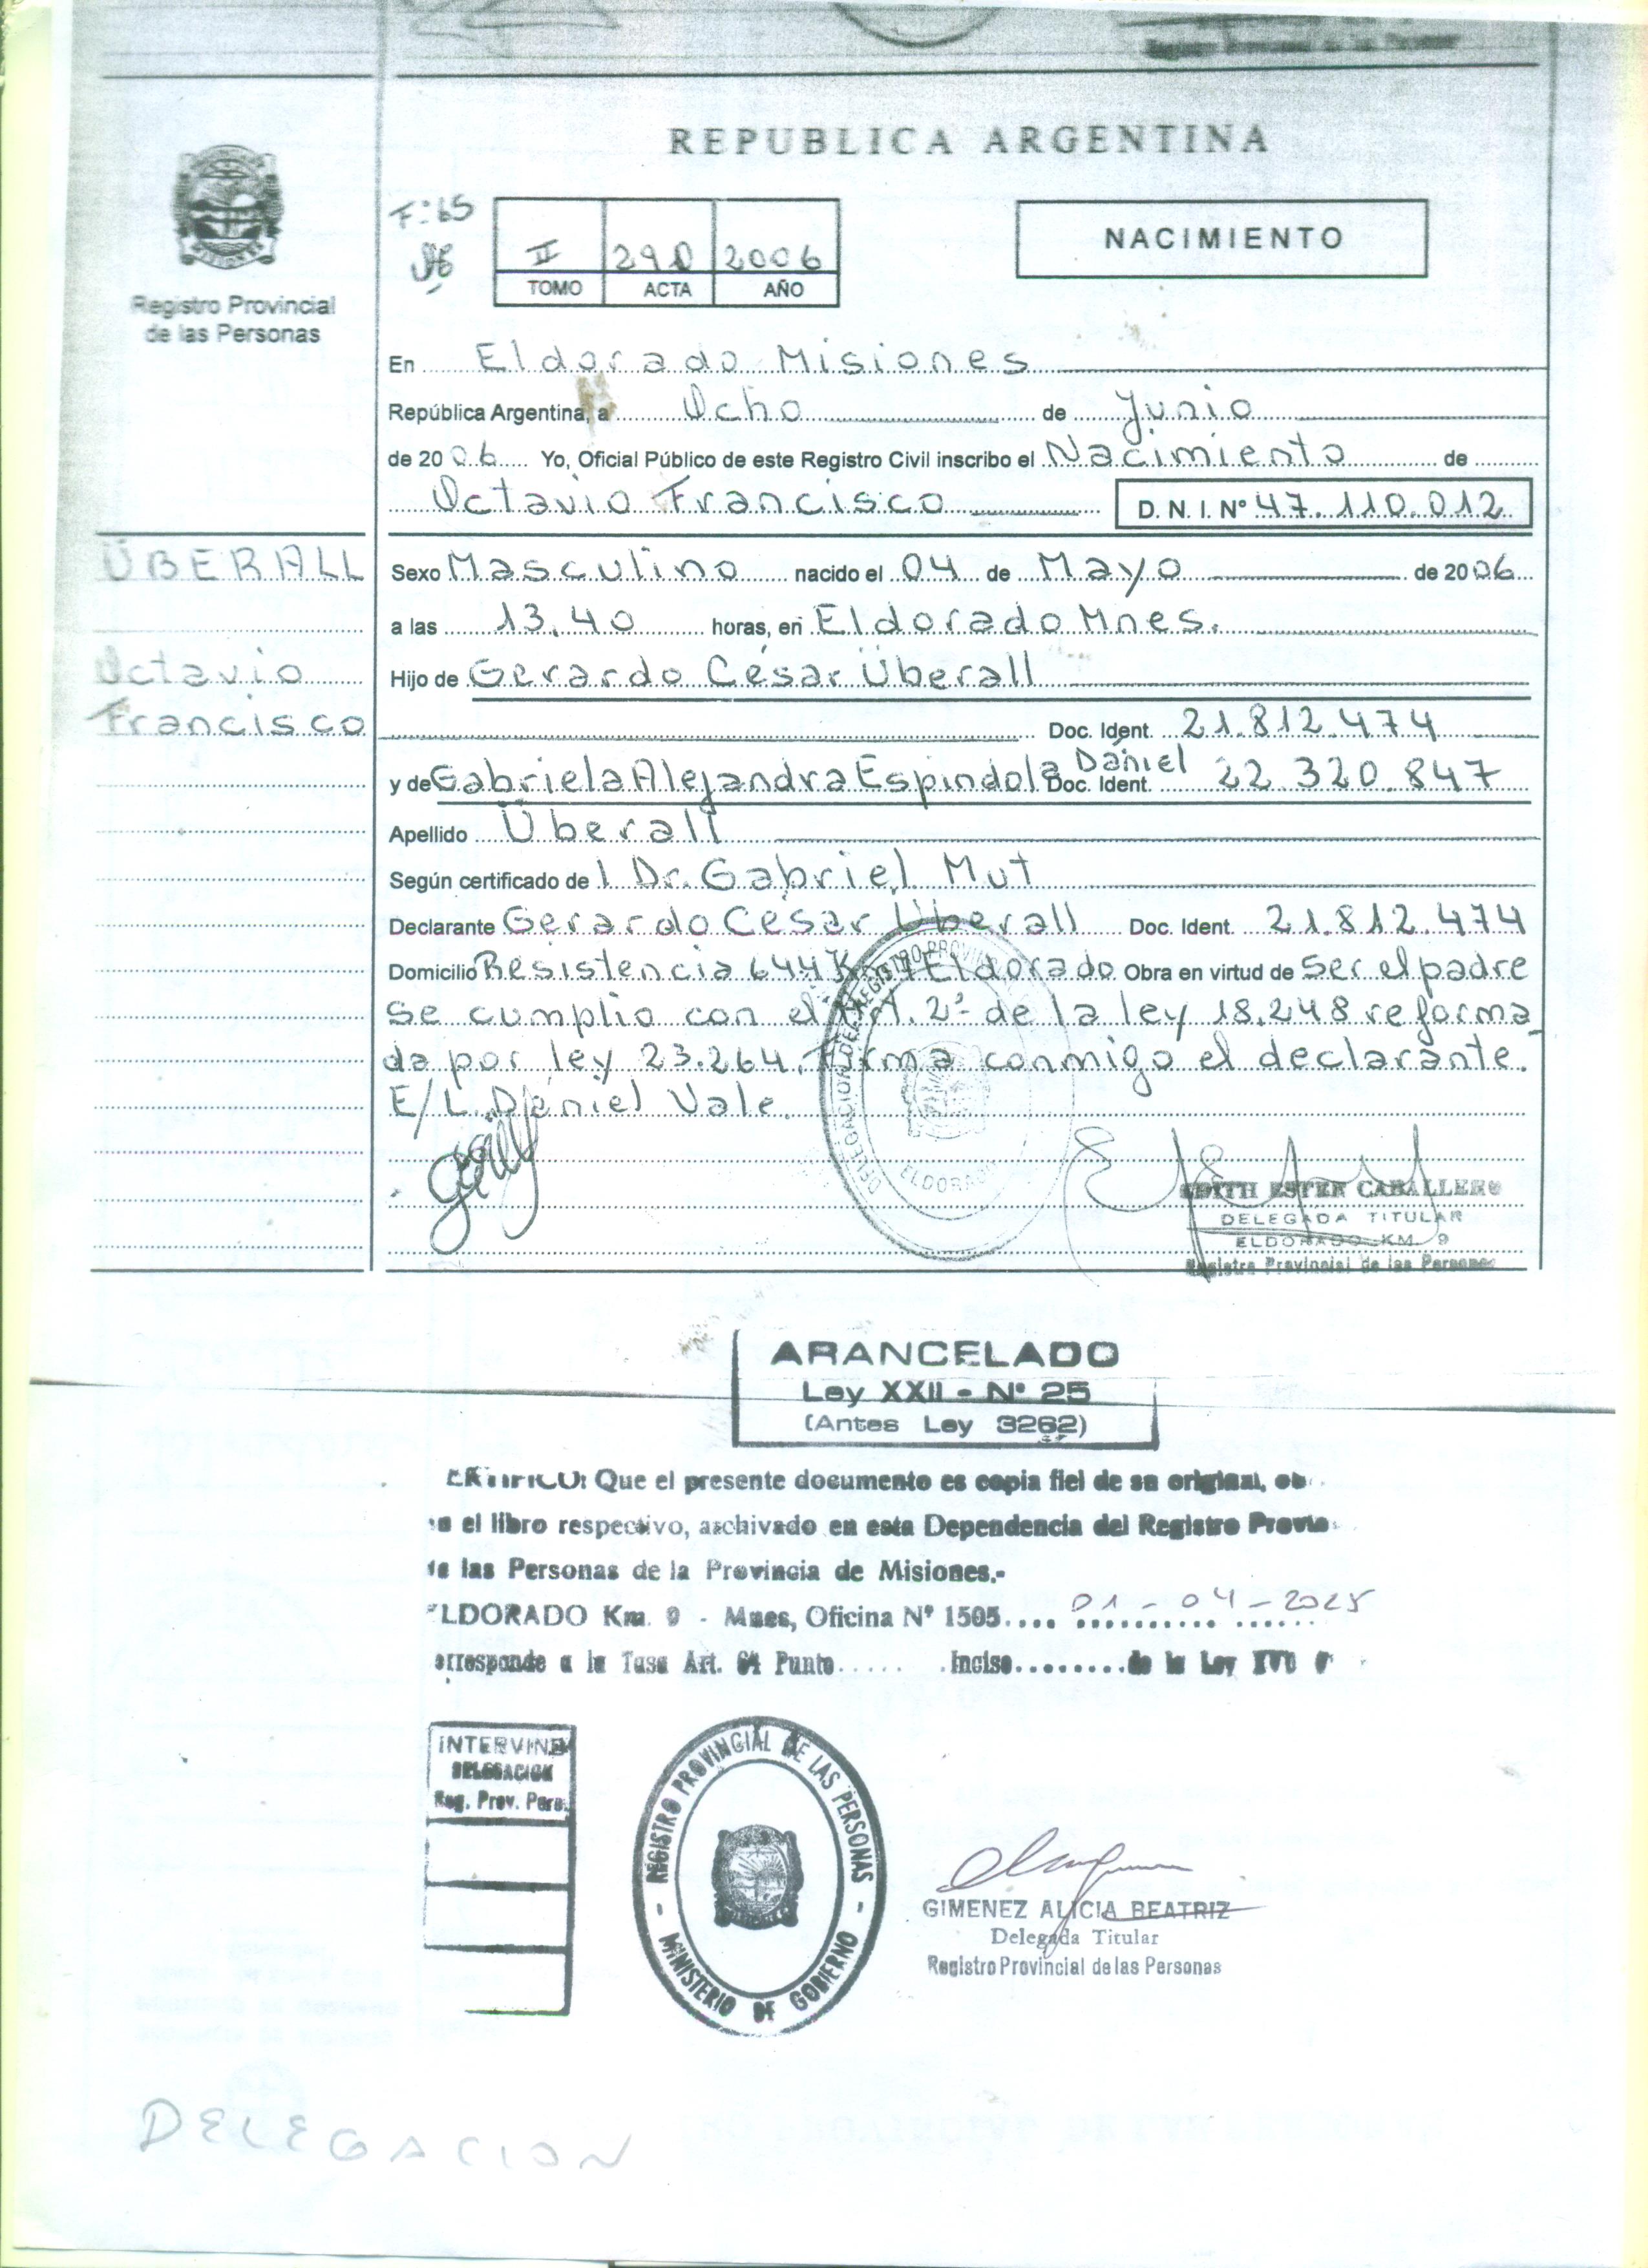 Registro Provincial de las Personas
REPUBLICA ARGENTINA
Registro Provincial
de las Personas
F:65
II 290 2006
TOMO ACTA AÑO
NACIMIENTO
En Eldorado Misiones
República Argentina, a Ocho de Junio
de 2006 Yo, Oficial Público de este Registro Civil inscribo el Nacimiento de
Octavio Francisco D.N.I. Nº 47.110.012
ÜBERALL
Octavio
Francisco
Sexo Masculino nacido el 04 de Mayo de 2006
a las 13.40 horas, en Eldorado Mnes.
Hijo de Gerardo César Überall
Doc. Ident. 21.812.474
y de Gabriela Alejandra Espindola Daniel Doc. Ident. 22.320.847
Apellido Überall
Según certificado del Dr. Gabriel Mut
Declarante Gerardo César Überall Doc. Ident. 21.812.474
Domicilio Resistencia 644 Eldorado Obra en virtud de ser el padre
se cumplio con el Art. 2º de la ley 18.248 reforma
da por ley 23.264. Firma conmigo el declarante.
E/L. Daniel Vale.
DELEGACION DEL REGISTRO
ELDORADO
EDITH ESTER CABALLERO
DELEGADA TITULAR
ELDORADO KM. 9
Registro Provincial de las Personas
ARANCELADO
Ley XXII - Nº 25
(Antes Ley 3262)
ERTIFICO: Que el presente documento es copia fiel de su original, ob
n el libro respectivo, archivado en esta Dependencia del Registro Provin
de las Personas de la Provincia de Misiones.-
ELDORADO Km. 9 - Mnes, Oficina Nº 1505.... 01-04-2025
orresponde a la Tasa Art. 64 Punto..... .Inciso........de la Ley XVI
INTERVINO
DELEGACION
Reg. Prov. Pers.
REGISTRO PROVINCIAL DE LAS PERSONAS
- MINISTERIO DE GOBIERNO -
GIMENEZ ALICIA BEATRIZ
Delegada Titular
Registro Provincial de las Personas
DELEGACION